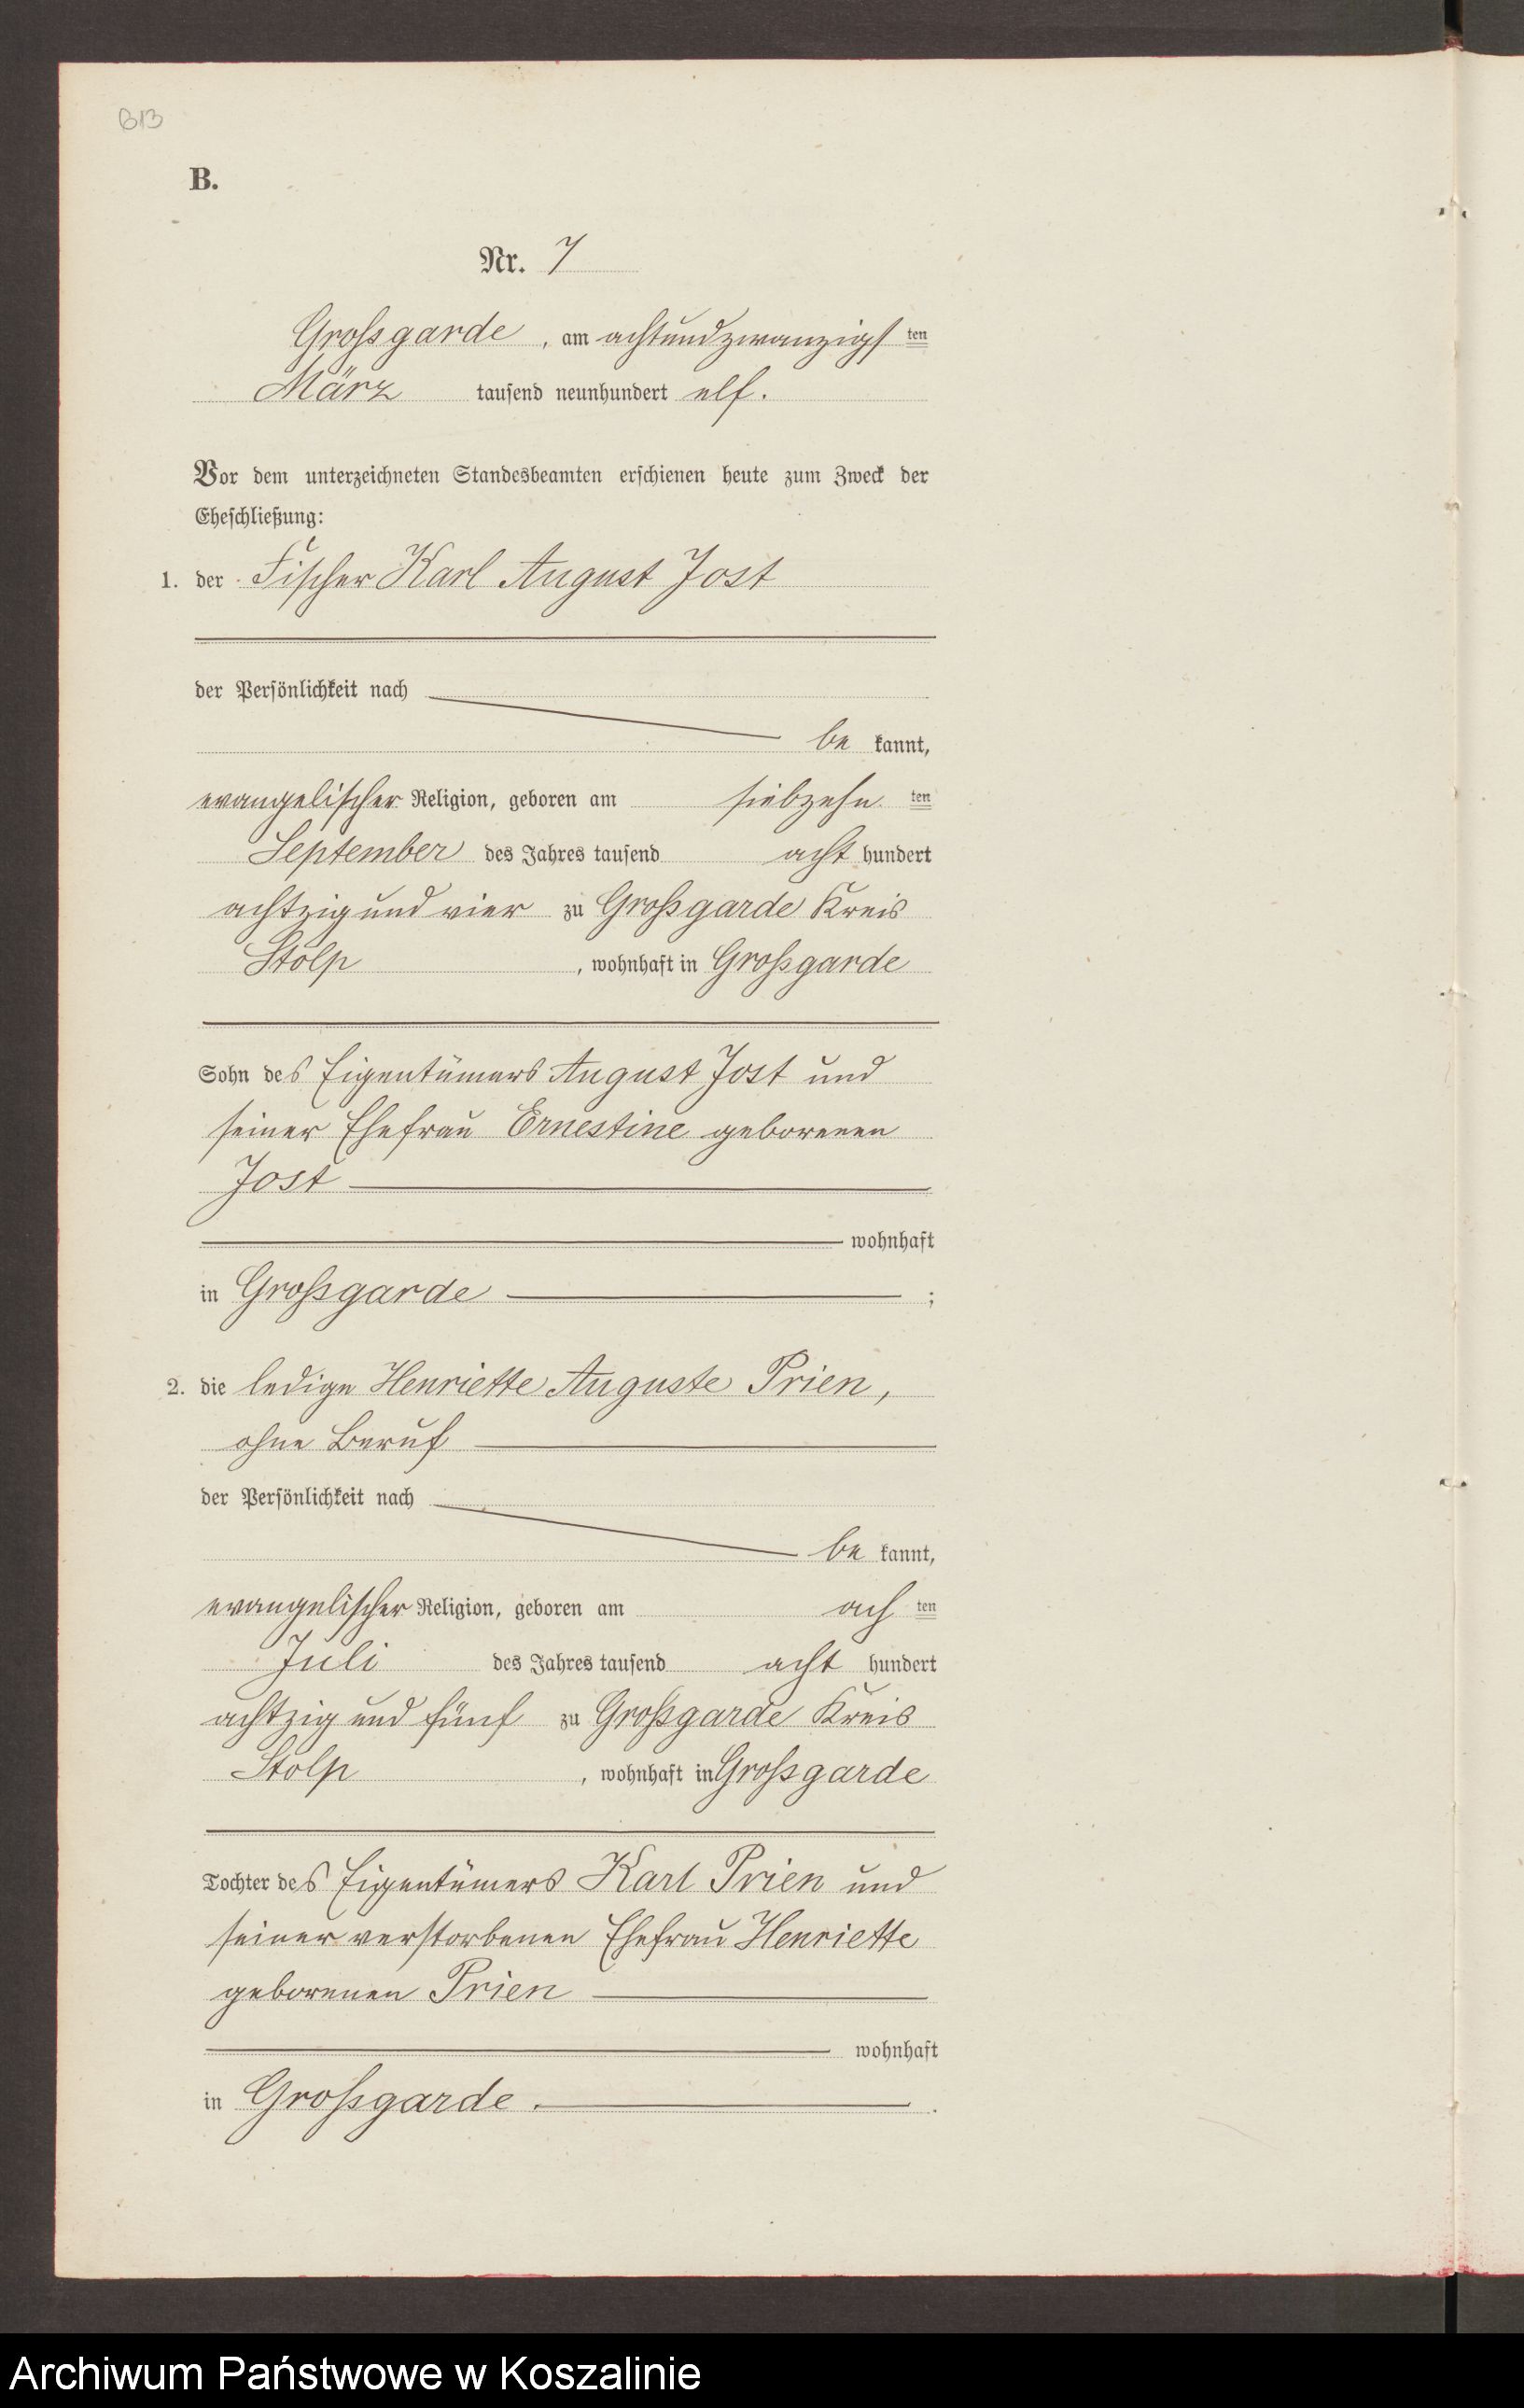 B13
B.
Nr. 7
Grossgarde, am achtundzwanzigsten
März tausend neunhundert elf.
Vor dem unterzeichneten Standesbeamten erschienen heute zum Zweck der
Eheschließung:
1. der Fischer Karl August Jost
der Persönlichkeit nach
be kannt,
evangelischer Religion, geboren am siebzehn ten
September des Jahres tausend acht hundert
achtzig und vier zu Grossgarde Kreis
Stolp, wohnhaft in Grossgarde
Sohn des Eigentümers August Jost und
seiner Ehefrau Ernestine geborenen
Jost
wohnhaft
in Grossgarde ;
2. die ledige Henriette Auguste Prien,
ohne Beruf
der Persönlichkeit nach
be kannt,
evangelischer Religion, geboren am ach ten
Juli des Jahres tausend acht hundert
achtzig und fünf zu Grossgarde Kreis
Stolp, wohnhaft in Grossgarde
Tochter des Eigentümers Karl Prien und
seiner verstorbenen Ehefrau Henriette
geborenen Prien
wohnhaft
in Grossgarde.
Archiwum Państwowe w Koszalinie